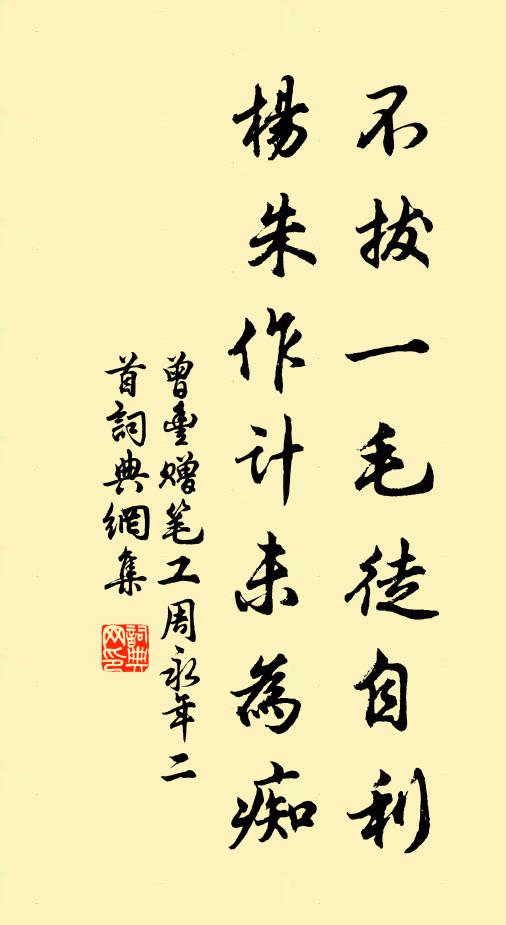 不拔一毛徒自利
楊朱作計未為痴
曾豊贈笔工周永年二
首詞典網集
詞典
网印